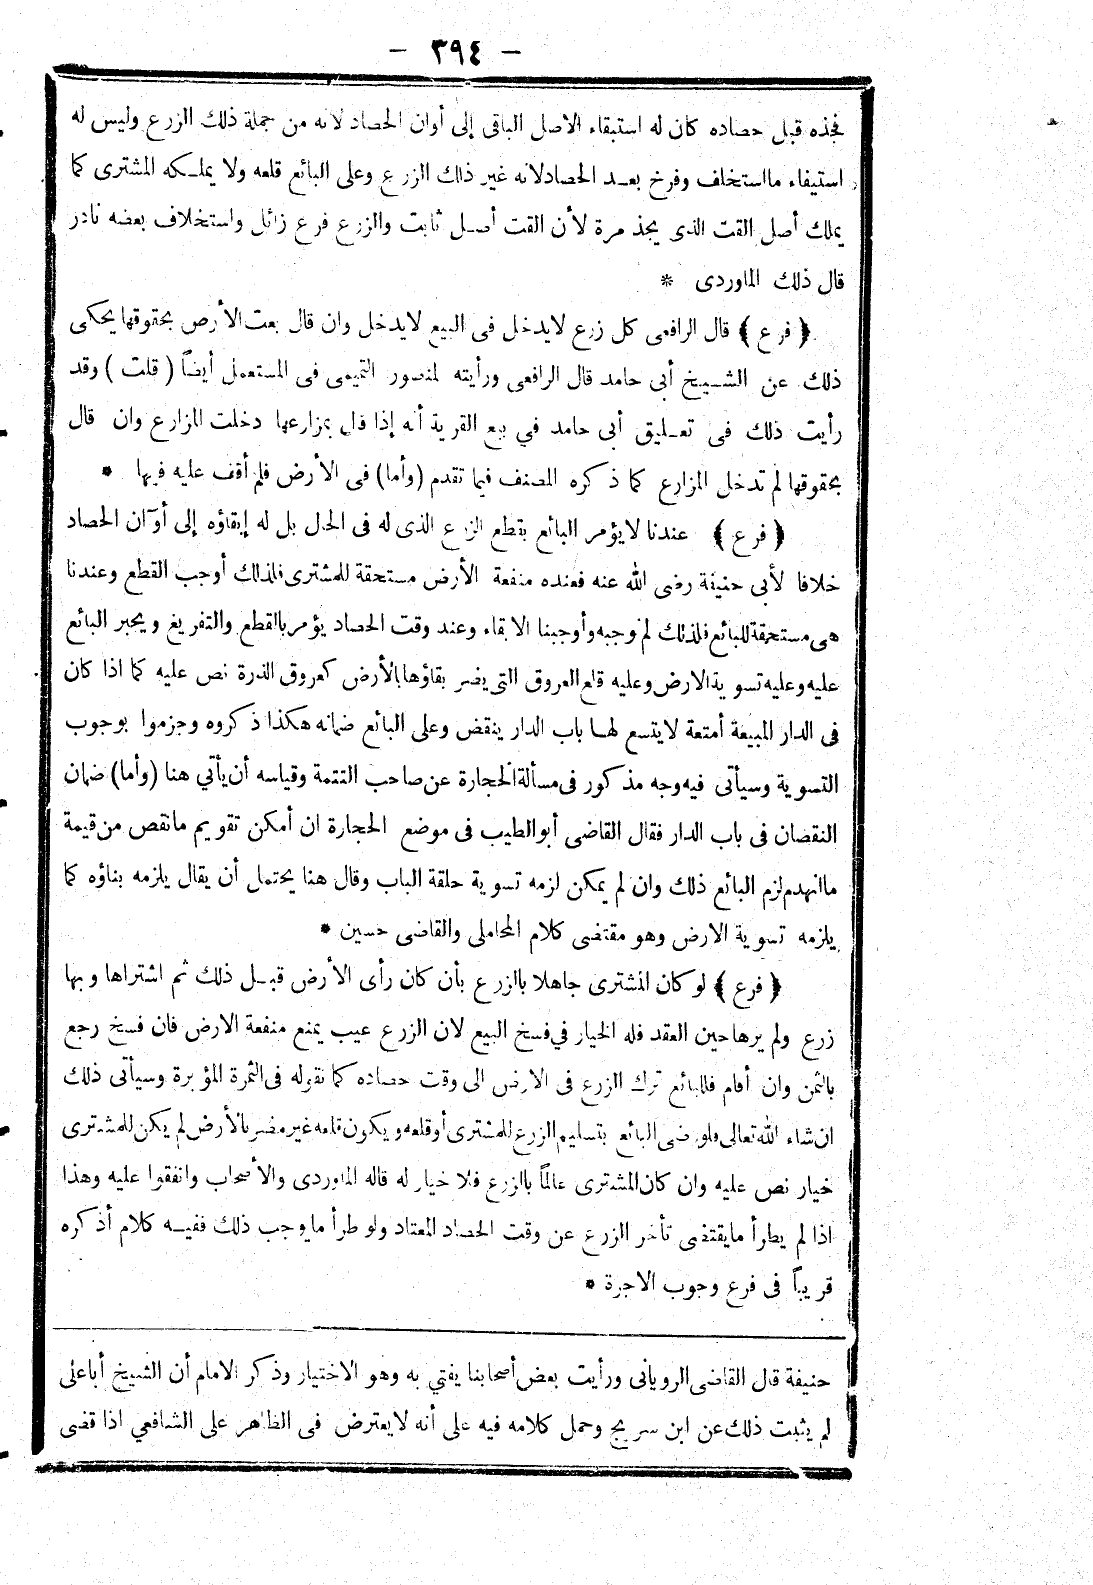 – ٣٩٤ –
فجذه قبل حصاده كان له استبقاء الاصل الباقى إلى أوان الحصاد لانه من جملة ذلك الزرع وليس له
استيفاء مااستخلف وفرخ بعد الحصادلانه غير ذلك الزرع وعلى البائع قلعه ولا يملكه المشترى كما
يملك أصل القت الذى يجذ مرة لأن القت أصل ثابت والزرع فرع زائل واستخلاف بعضه نادر
قال ذلك الماوردى *
﴿ فرع ﴾ قال الرافعى كل زرع لايدخل فى البيع لايدخل وان قال بعت الأرض بحقوقها يحكى
ذلك عن الشيخ أبى حامد قال الرافعى ورأيته لمنصور التميمى فى المستعمل أيضاً ( قلت ) وقد
رأيت ذلك فى تعليق أبى حامد في بيع القرية أنه إذا قال بمزارعها دخلت المزارع وان قال
بحقوقها لم تدخل المزارع كما ذكره المصنف فيما تقدم (وأما) فى الأرض فلم أقف عليه فيها *
﴿ فرع ﴾ عندنا لايؤمر البائع بقطع الزرع الذى له فى الحال بل له إبقاؤه إلى أوان الحصاد
خلافا لأبى حنيفة رضى الله عنه فعنده منفعة الأرض مستحقة للمشترى فلذلك أوجب القطع وعندنا
هى مستحقة للبائع فلذلك لم نوجبه وأوجبنا الابقاء وعند وقت الحصاد يؤمر بالقطع والتفريغ ويجبر البائع
عليه وعليه تسوية الارض وعليه قلع العروق التى يضر بقاؤها بالأرض كعروق الذرة نص عليه كما اذا كان
فى الدار المبيعة أمتعة لايتسع لها باب الدار ينقض وعلى البائع ضمانه هكذا ذكروه وجزموا بوجوب
التسوية وسيأتى فيه وجه مذكور فى مسألة الحجارة عن صاحب التتمة وقياسه أن يأتي هنا (وأما) ضمان
النقصان فى باب الدار فقال القاضى أبو الطيب فى موضع الحجارة ان أمكن تقويم مانقص من قيمة
ماانهدم لزم البائع ذلك وان لم يمكن لزمه تسوية حلقة الباب وقال هنا يحتمل أن يقال يلزمه بناؤه كما
يلزمه تسوية الارض وهو مقتضى كلام المحاملى والقاضى حسين *
﴿ فرع ﴾ لو كان المشترى جاهلا بالزرع بأن كان رأى الأرض قبل ذلك ثم اشتراها وبها
زرع ولم يرها حين العقد فله الخيار في فسخ البيع لان الزرع عيب يمنع منفعة الارض فان فسخ رجع
بالثمن وان أقام فللبائع ترك الزرع فى الارض الى وقت حصاده كما نقوله فى الثمرة المؤبرة وسيأتى ذلك
ان شاء الله تعالى فلو رضى البائع بتسليم الزرع للمشترى أو قلعه ويكون قلعه غير مضر بالأرض لم يكن للمشترى
خيار نص عليه وان كان المشترى عالماً بالزرع فلا خيار له قاله الماوردى والأصحاب واتفقوا عليه وهذا
اذا لم يطرأ مايقتضى تأخر الزرع عن وقت الحصاد المعتاد ولو طرأ مايوجب ذلك ففيه كلام أذكره
قريباً فى فرع وجوب الاجرة *
حنيفة قال القاضى الرويانى ورأيت بعض أصحابنا يفتي به وهو الاختيار وذكر الامام أن الشيخ أباعلى
لم يثبت ذلك عن ابن سريج وحمل كلامه فيه على أنه لايعترض فى الظاهر على الشافعي اذا قضى